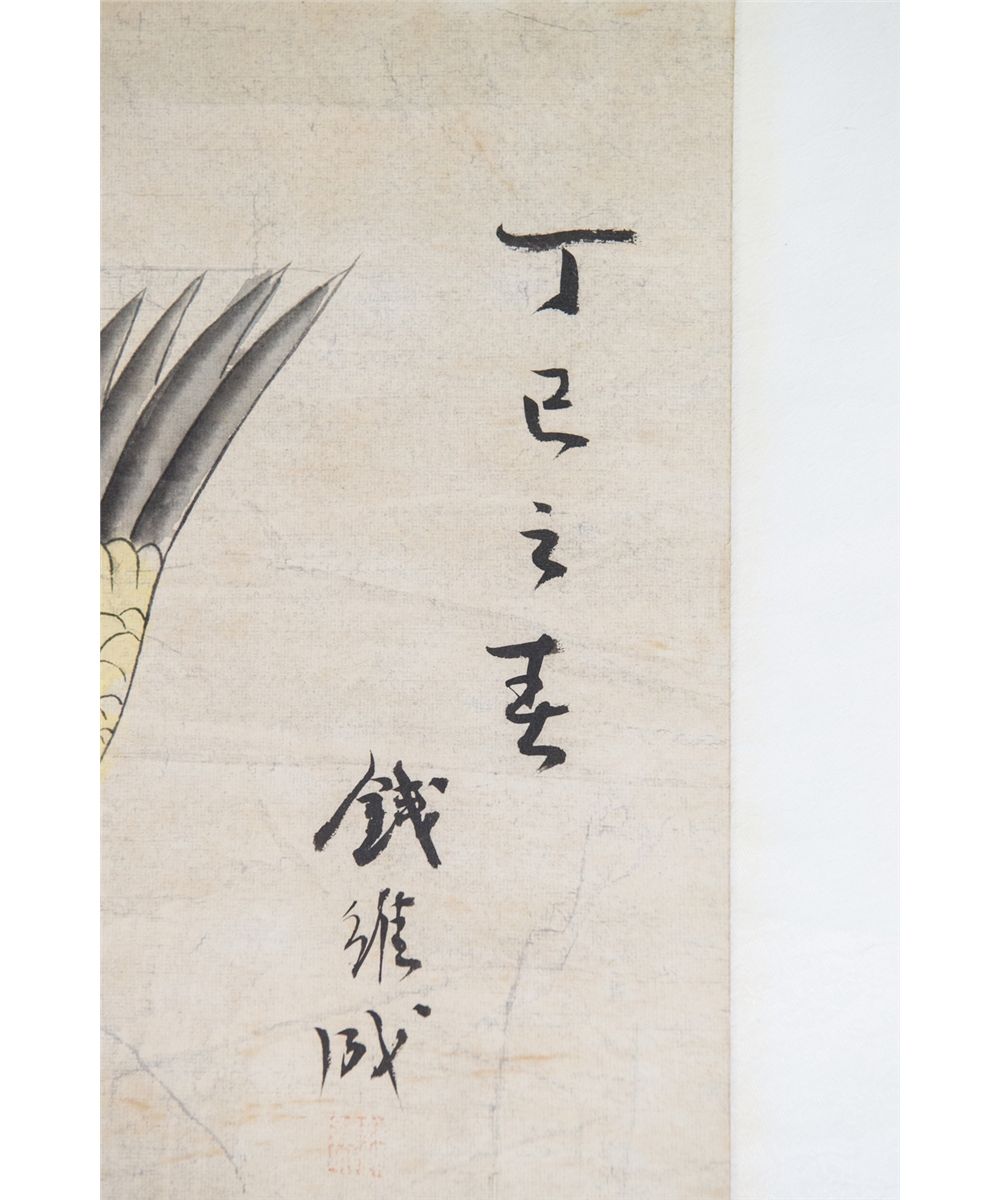 丁巳之春
錢維城